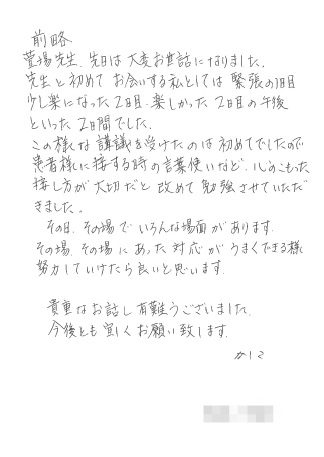 前略
萱場先生、先日は大変お世話になりました。
先生と初めてお会いする私としては緊張の1日目
少し楽になった2日目、楽しかった2日目の午後
といった2日間でした。
この様な講議を受けたのは初めてでしたので
患者様に接する時の言葉使いなど、心のこもった
接し方が大切だと改めて勉強させていただ
きました。
その日、その場でいろんな場面があります。
その場、その場にあった対応がうまくできる様
努力していけたら良いと思います。
貴重なお話し有難うございました。
今後とも宜しくお願い致します。
かしこ